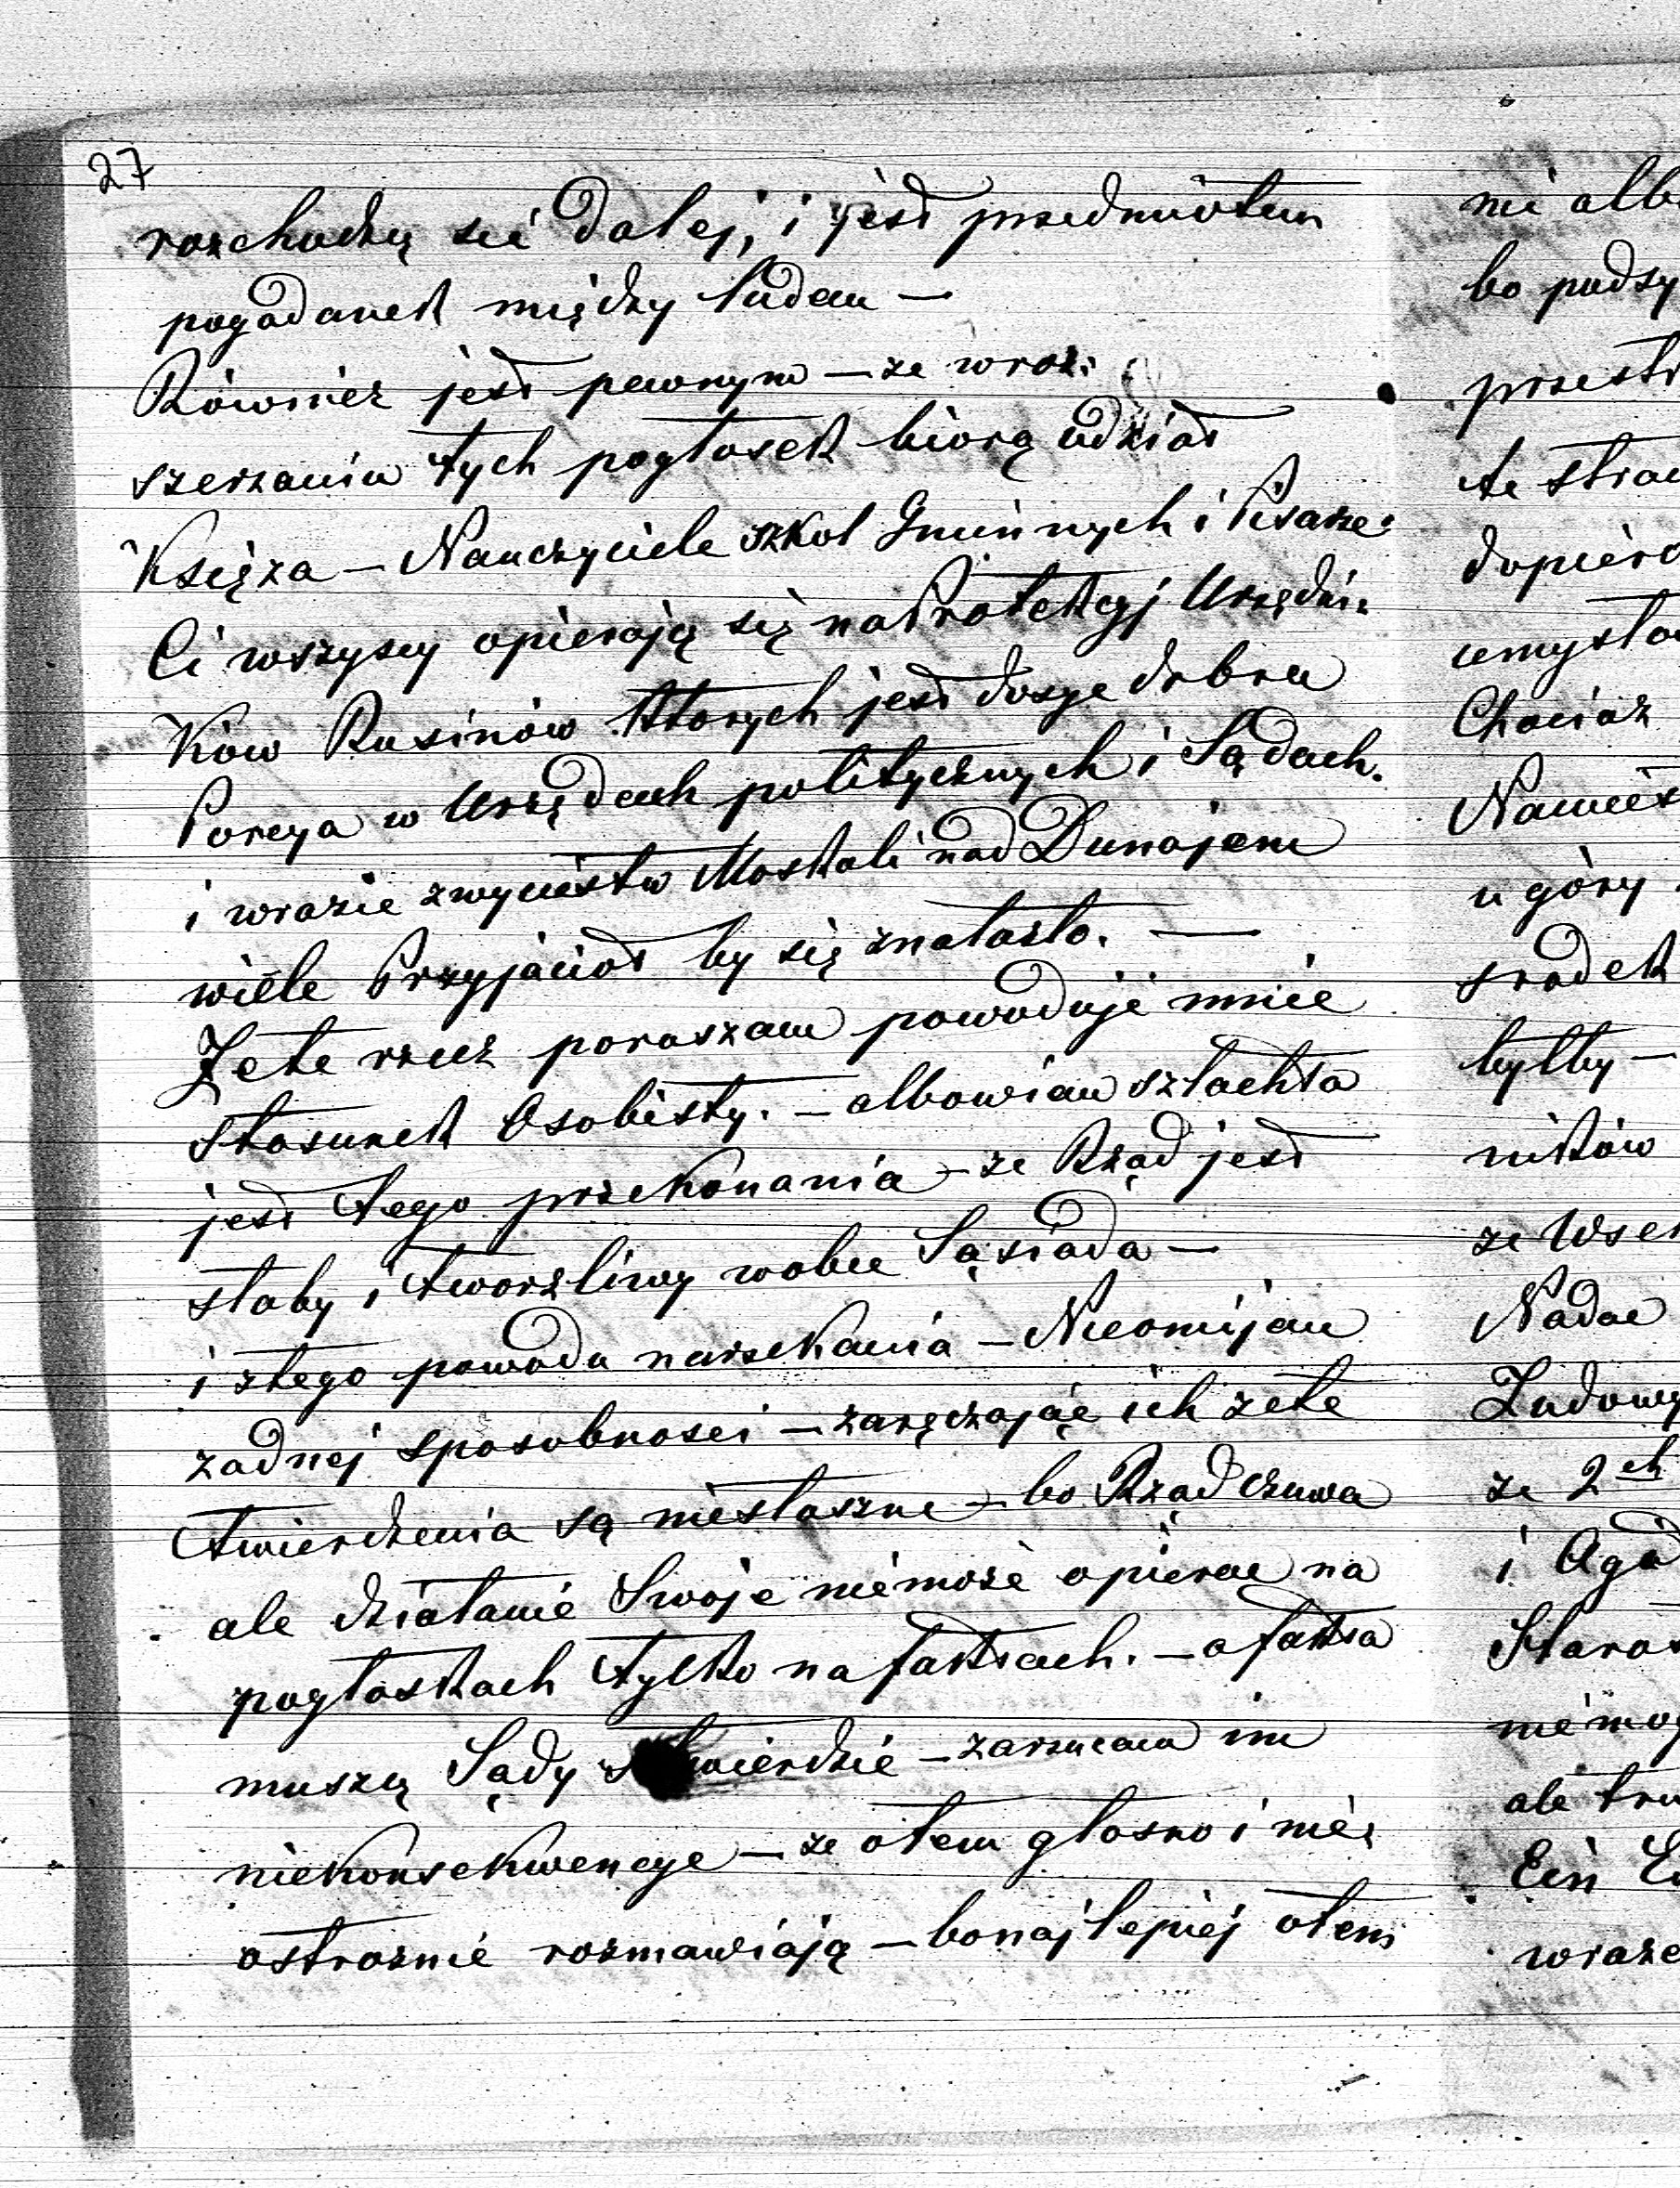 27
rozchodzą sié dalej, i jest przedmiotem
pogadanek między ludem —
Rówinież jest pewnym — ze wroz:
szerzaniu tych pogłosek biorą udział
Księza — Nauczyciele szkol Gminnych i Pisarze:
Ci wszyscy opierają się na Protekcyj Urzędni:
Ków Rusinów ktorych jest dosyc dobra
Porcya w Urzędach politycznych i Sądach.
i wrazie zwycięstw Moskali nad Dunajem
wiele Przyjaciół by się znalazło. —
Zete rzecz poruszam powoduje mnie
stosunek Osobisty. — albowiem szlachta
jest tego przekonania — ze Rząd jest
słaby i tworzliwy wobec Sąsiada —
i ztego powodu narzekania — Nieomijam
zadnej sposobnosci — zaręczając ich zete
twierdzenia są niesłuszne — bo Rząd czuwa
ale działanie Swoje niemoze opierac na
pogłoskach tylko na faktach. — a fakta
muszą Sądy stwierdzic — zarzucam im
niekonsekwencye — ze otem głosno i nie:
ostroznie rozmawiają — bonajlepiej otem
ni alb
bo podsy
przestr
te stra
dopiero
umysło
Chociaz
Namies
u góry
srodek
byłby —
ników
ze Wse
Nadae
Ludowy
ze 2ch
i Agi
Staros
niemog
ale tru
Ein E
wraze